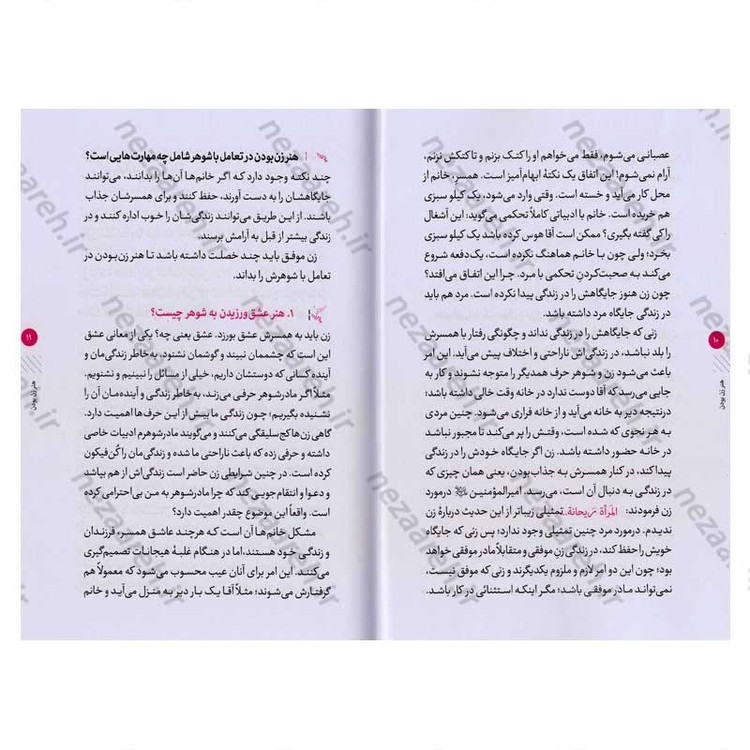 عصبانی می‌شوم، فقط می‌خواهم او را کتک بزنم و تا کتکش نزنم،
آرام نمی‌شوم! این اتفاق یک نکتهٔ ابهام‌آمیز است. همسرِ خانم از
محل کار می‌آید و خسته است. وقتی وارد می‌شود، یک کیلو سبزی
هم خریده است. خانم با ادبیاتی کاملاً تحکمی می‌گوید: این آشغال
را کی گفته بگیری؟ ممکن است آقا هوس کرده باشد یک کیلو سبزی
بخرد؛ ولی چون با خانم هماهنگ نکرده است، یک‌دفعه شروع
می‌کند به صحبت‌کردنِ تحکمی با مرد. چرا این اتفاق می‌افتد؟
چون زن هنوز جایگاهش را در زندگی پیدا نکرده است. مرد هم باید
در زندگی جایگاه مرد داشته باشد.
زنی که جایگاهش را در زندگی نداند و چگونگی رفتار با همسرش
را بلد نباشد، در زندگی‌اش ناراحتی و اختلاف پیش می‌آید. این امر
باعث می‌شود زن و شوهر حرف همدیگر را متوجه نشوند و کار به
جایی می‌رسد که آقا دوست ندارد در خانه وقت خالی داشته باشد؛
درنتیجه دیر به خانه می‌آید و از خانه فراری می‌شود. چنین مردی
به هر نحوی که شده است، وقتش را پر می‌کند تا مجبور نباشد
در خانه حضور داشته باشد. زن اگر جایگاه خودش را در زندگی
پیدا کند، در کنار همسرش به جذاب‌بودن، یعنی همان چیزی که
در زندگی به دنبال آن است، می‌رسد. امیرالمؤمنین درمورد
زن فرمودند: المَرأة رَیحانة. تمثیلی زیباتر از این حدیث دربارهٔ زن
ندیدم. درمورد مرد چنین تمثیلی وجود ندارد؛ پس زنی که جایگاه
خویش را حفظ کند، در زندگی زنِ موفقی و متقابلاً مادر موفقی خواهد
بود؛ چون این دو امر لازم و ملزوم یکدیگرند و زنی که موفق نیست،
نمی‌تواند مادر موفقی باشد؛ مگر اینکه استثنائی در کار باشد.
۱۰
هنر زن بودن
هنر زن بودن در تعامل با شوهر شامل چه مهارت‌هایی است؟
چند نکته وجود دارد که اگر خانم‌ها آن‌ها را بدانند، می‌توانند
جایگاهشان را به دست آورند، حفظ کنند و برای همسرشان جذاب
باشند. از این طریق می‌توانند زندگی‌شان را خوب اداره کنند و در
زندگی بیشتر از قبل به آرامش برسند.
زن موفق باید چند خصلت داشته باشد تا هنر زن‌بودن در
تعامل با شوهرش را بداند.
۱. هنر عشق ورزیدن به شوهر چیست؟
زن باید به همسرش عشق بورزد. عشق یعنی چه؟ یکی از معانی عشق
این است که چشممان نبیند و گوشمان نشنود، به‌خاطر زندگی‌مان و
آینده کسانی که دوستشان داریم، خیلی از مسائل را نبینیم و نشنویم.
مثلاً اگر مادرشوهر حرفی می‌زند، به خاطر زندگی و آینده‌مان آن را
نشنیده بگیریم؛ چون زندگی ما بیش از این حرف‌ها اهمیت دارد.
گاهی زن‌ها کج‌سلیقگی می‌کنند و می‌گویند مادرشوهرم ادبیات خاصی
داشته و حرفی زده که باعث ناراحتی ما شده و زندگی‌مان را کُن‌فیکون
کرده است. در چنین شرایطی زن حاضر است زندگی‌اش از هم بپاشد
و دعوا و انتقام‌جویی کند که چرا مادرشوهر به من بی‌احترامی کرده
است. واقعاً این موضوع چقدر اهمیت دارد؟
مشکل خانم‌ها آن است که هرچند عاشق همسر، فرزندان
و زندگی خود هستند، اما در هنگام غلبهٔ هیجانات تصمیم‌گیری
می‌کنند. این امر برای آنان عیب محسوب می‌شود که معمولاً هم
گرفتارش می‌شوند؛ مثلاً آقا یک بار دیر به منزل می‌آید و خانم
۱۱
هنر زن بودن
nezaareh.ir